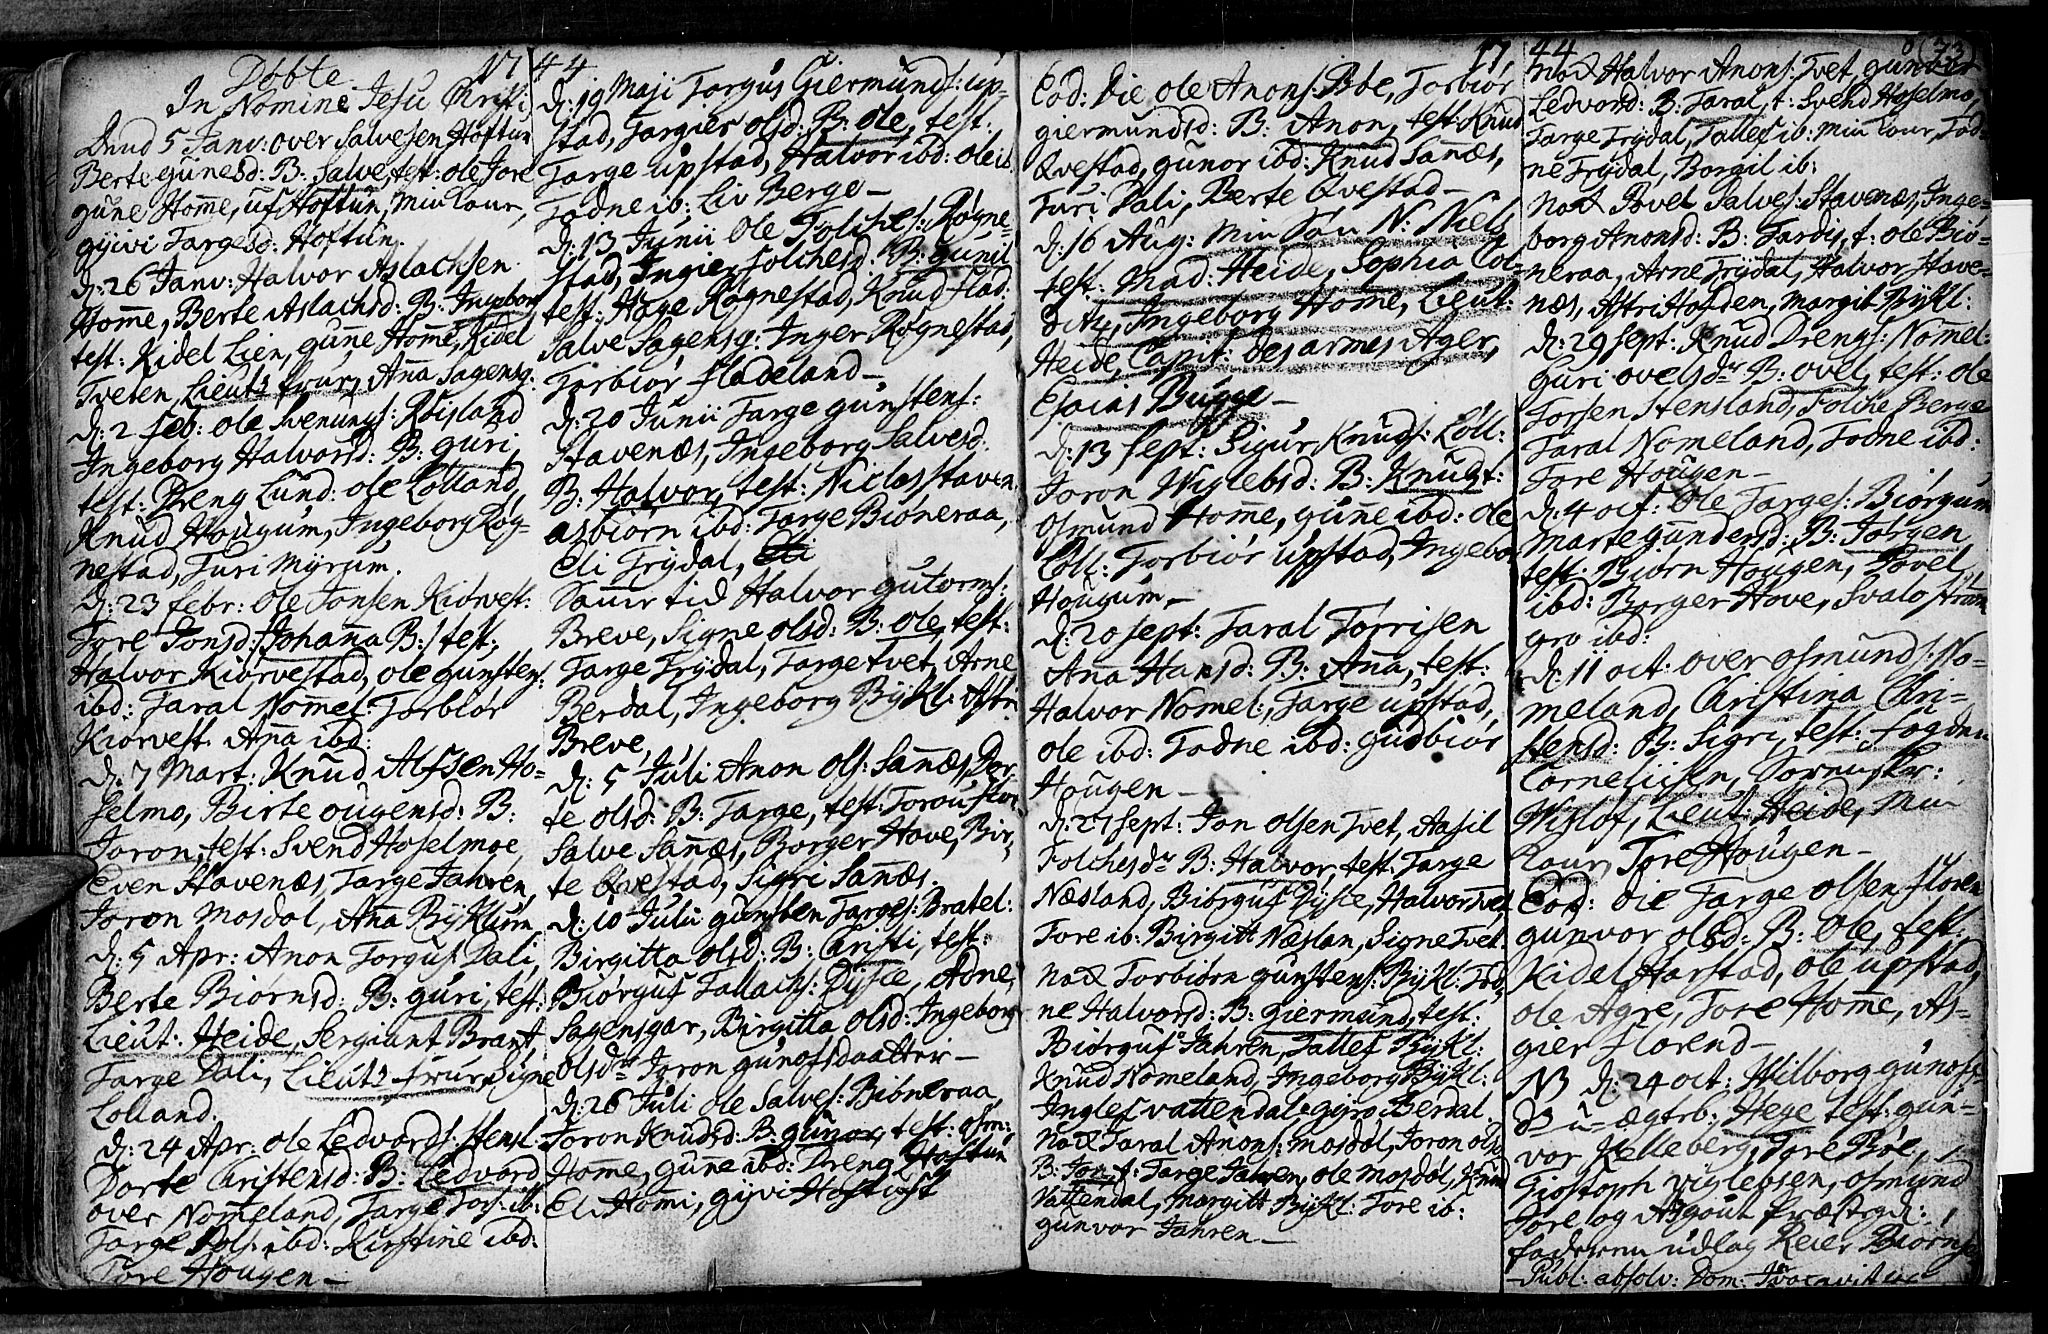 Döbte 1744
In Nomine Jesu Christi
5 Janv: over Salvesen Hoftun
Berte gunesd: B: Salve, test: ole Jore
gune Homme, uf Hoftun, Min Cour,
gyivi Targesd: Hoftun.
d: 26 Janv: Halvor Aslachsen
Homme, Berte Aslachsd: B: Ingebor
test: Kidel Lien, gunne Homme, Kidel
Tveten, Lieuts frur, Anna Sagensg.
d: 2 feb: ole Svenungs: Röisland
Ingeborg Halvorsd: B: guri,
test: Dreng Lund: ole Lolland,
Knud Hougum, Ingeborg Røg-
nestad, Turi Myrum.
d: 23 febr: ole Jonsen Kiörvest:
Tore Jonsd: Johanna B: test:
Halvor Kiörvestad, ole gunstens:
ibd: Taral Nommel: Torbiör
Kiörvest. Anna ibd:
d: 7 Mart: Knud Alfsen Ho-
selmo, Birte ougensd: B:
Joron, test: Svend Hoselmoe,
Even Stavenæs, Targe Jahren,
Joron Mosdal, Anna Byklum,
d: 5 Apr: Anon Torgus: Dali,
Berte Biornsd: B: guri, test:
Lieut: Heide, Sergiant Brant,
Targe Dali, Lieuts frur, Signe
Lolland.
d: 24 Apr: ole Ledvords: Stensl:
Dorte Christensd: B: Ledvord,
over Nommeland, Targe Tors: ib:
Targe ols: ibd: Kirstine ibd:
Tore Hougen –
d: 19 Maji Torgus Giermunds: up-
stad, Targier olsd: B: Ole, test:
Targe upstad, Halvor ibd: ole ib:
Todne ib: Liv Berge –
d: 13 Junii Ole Folches: Røgne-
stad, Ingier folchesd: B: gunil
test: Hage Røgnestad, Knud flad:
Salve Sagensg: Inger Røgnestad,
Torbiör fladeland –
d: 20 Junii Targe gunstens:
Stavenæs, Ingeborg Salvesd:
B: Halvor, test: Niclas Staven
asbiörn ibd: Targe Biöneraa,
Eli Trydal,
Samme tid Halvor gutorms:
Breve, Signe olsd: B: Ole, test:
Targe Trydal, Targe tvet, Arne
Berdal, Ingeborg Bykl: Astri
Breve,
d: 5 Juli Anon ols: Sannæs, Dor-
te olsd: B: Targe, test:
Salve Sannæs, Borger Hove, Bir-
te Qvestad, Sigri Sannæs.
d: 10 Julii gunsten Targes: Bratel:
Birgitta olsd: B: Christi, test:
Biörguf Tallachs: Dysie, Adne
Sagensgar, Birgitta olsd: Ingeborg
olsdr Joron gunofsdaatter –
d: 26 Juli ole Salves: Biöneraa,
Joron Knudsd: B: gunor, test: osm:
Homme, gunne ibd: Dreng Hoftun
Eli Homi, gyivi Hoftuft
1744
Eod: Die ole Anons: Böe, Torbiör
giermundsd: B: Anon, test: Knud
Qvestad, gunor ibd: Knud Sannæs,
Turi Dali, Berte Qvestad –
d: 16 Aug: Min Sön N: Niels
test: Mad: Heide, Sophia Col-
Ingeborg Homme, Lieut:
Heide, Capit: des armes Ager,
Esaias Bugge –
d: 13 Sept: Sigur Knuds: Loll:
Joron Wiglebsd: B: Knud t:
Osmund Homme, gunne ibd: ole
Loll: Torbiör upstad, Ingebo
Hougum –
d: 20 sept: Taral Torrisen
Anna Hansd: B: Anna, test:
Halvor Nomel:, Targe upstad,
ole ibd: Todne ibd: gudbiör
Hougen –
d: 27 sept: Jon olsen Tvet, Aasil
Folchesdr B: Halvor, test: Targe
Næsland, Biörguf Dysie, Halvor Tvet
Tore ib: Birgitt Næslan, Signe Tvet.
Nod Torbiörn gunstens: Bykl: Tod-
ne Halvorsd: B: giermund, test:
Biörguf Jahren, Tallef Bykl:
Knud Nomeland, Ingeborg Bykl:
Inglef Vattendal, gyro Berdal.
Nod Taral Anons: mosdøl, Joron ols
B: Jon, t: Targe Jahren, ole mosdøl, Knud
Vattendal, Margitt Bykl: Tore ib:
gunvor Jahren –
(73)
Nod Halvor Anons: Tvet, gunvor
Ledvord: B: Taral, t: Svend Hoselmo,
Targe Trydal, Tallef ib: Min Cour, Tod-
ne Trydal, Borgil ib:
Nod Povel Salves: Stavenæs, Inge-
borg Anonsd: B: Tardis, t: ole Biö-
neraa, Arne Trydal, Halvor Stave-
næs, Astri Hofden, Margit Bykl:
d: 29 sept: Knud Drengs: Nomel:
Guri ovelsdr B: ovel, test: ole
Torsen Stensland, Folche Berge
Taral Nomeland, Todne ibd:
Tore Hougen –
d: 4 oct: Ole Targes: Biörgum
Marte gundersd: B: Torgen
test: Biörn Hougen, Povel
ibd: Borger Hove, Svalo
gro ibd:
d: 11 oct: over osmunds: No-
meland, Christina Chri-
stensd: B: Sigri, test:
Cornelijsen,
Wiglof, Lieut: Heide, Min
Cour, Tore Hougen –
Eod: die Targe olsen floren
gunvor olsd: B: Ole, test:
Kidel Harstad, ole upstad,
ole Agre, Tore Homme, As-
gier florend –
NB d: 24 oct: Wilborg gunofs-
dr u-ægteb: Hege test: gun-
vor Kelleberg, Tore Böe,
Giostoph Viglebsen, osmund
Tore og Asgout Præstegr:
faderen udlag Reier Biorns
Publ: absolv: Dom: